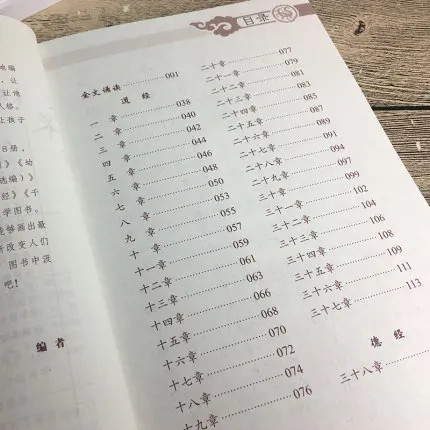 让
让他
人格。
让孩子
8册,
》《幼
选编)》
经》《千
学图书。
能够画出最
新改变人们
图书中汲
吧!
编 者
目录
全文诵读 001
道 经
一 章 038
二 章 040
三 章 042
四 章 044
五 章 046
六 章 048
七 章 050
八 章 053
九 章 055
十 章 057
十一章 059
十二章 061
十三章 063
十四章 066
十五章 068
十六章 070
十七章 072
十八章 074
十九章 076
二十章 077
二十一章 079
二十二章 081
二十三章 083
二十四章 085
二十五章 087
二十六章 089
二十七章 091
二十八章 094
二十九章 097
三十章 099
三十一章 102
三十二章 104
三十三章 106
三十四章 108
三十五章 109
三十六章 111
三十七章 113
德 经
三十八章